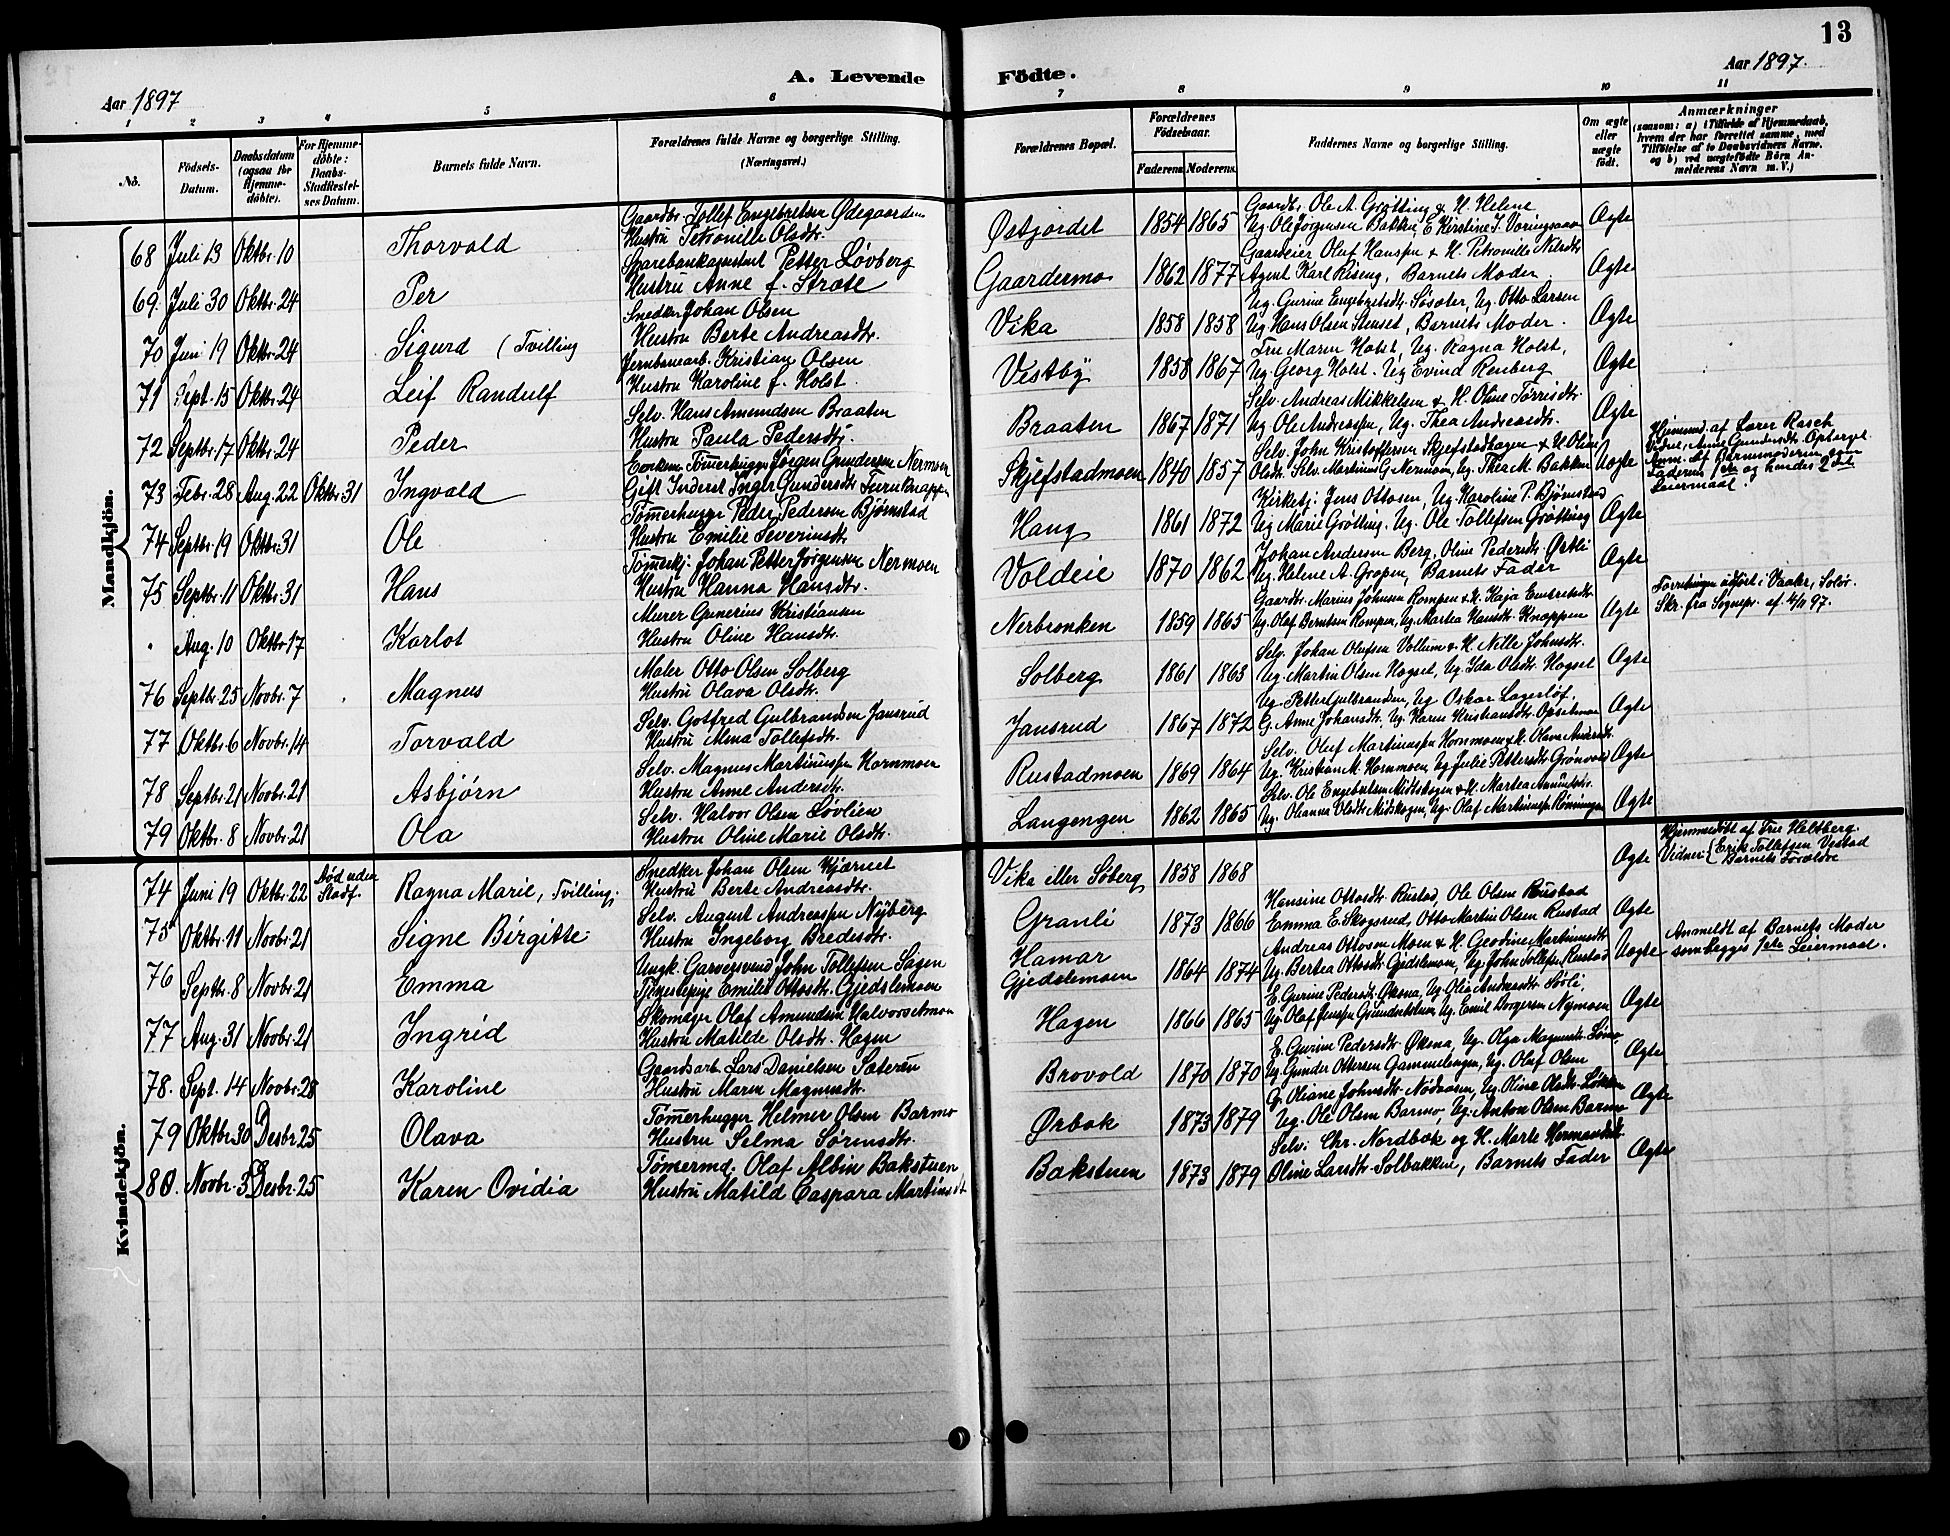 13
A. Levende Födte.
Aar 1897
Aar 1897.
1 2 3 4 5 6 7 8 9 10 11
No.
Födsels-Datum.
Daabsdatum (ogsaa for Hjemme-döbte).
For Hjemme-döbte: Daabs-Stadfæstel-ses Datum.
Barnets fulde Navn.
Forældrenes fulde Navne og borgerlige Stilling.
(Næringsvei.)
Forældrenes Bopæl.
Forældrenes Födselsaar.
Faderens. Moderens.
Faddernes Navne og borgerlige Stilling.
Om ægte eller uægte födt.
Anmærkninger
(saasom: a) i Tilfælde af Hjemmedaab, hvem der har forrettet samme, med Tilföielse af to Daabsvidners Navne, og b) ved uægtefödte Börn An-melderens Navn m. V.)
Mandkjön.
68 Juli 13 Oktbr. 10 Thorvald
Gaardbr. Tollef Engebretsen Ødegaarden
Hustru Petronille Olsdtr.
Østjordet 1854 1865
Gaardbr. Ole A. Grøtting & H. Helene
Ug. Ole Jørgensen Bakken, E. Kirstine J.
Ægte
69. Juli 30 Oktbr. 24 Per
Sparebankassistent Petter Løvberg
Hustru Anne f. Stræte
Gaardermo 1862 1877
Gaardeier Oluf Hanssen & H. Petronille Nilsdtr
Agent Karl Riseng, Barnets Moder.
Ægte
70 Juni 19 Oktbr. 24 Sigurd (Tvilling
Snedker Johan Olsen
Hustru Berte Andreasdtr.
Vika 1858 1858
Ug. Gurine Engebretsdtr. Søsæter, Ug. Otto Larsen
Ug. Hans Olsen Stenset, Barnets Moder.
Ægte
71 Sept. 15 Oktbr. 24 Leif Randulf
Jernbanearb. Kristian Olsen
Hustru Karoline f. Holst.
Vestby 1858 1867
Fru Maren Holst, Ug. Ragna Holst,
Ug. Georg Holst. Ug Evind Renberg
Ægte
72 Septbr. 17 Oktbr. 24 Peder
Selv. Hans Amundsen Braaten
Hustru Paula Pedersdtr.
Braaten 1867 1871
Selv. Andreas Mikkelsen & H. Oline Tørrisdtr.
Ug Ole Andreassen, Ug. Thea Andreasdtr.
Ægte
73 Febr. 28 Aug. 22 Oktbr 31 Ingvald
Enkem. Tømmerhugger Jørgen Gundersen Nermoen
Gift Inderst Inger Gundersdtr.
Skjefstadmoen 1840 1857
Selv. John Kristoffersen Skjefstadhagen & H. Oline
Olsdtr. Selv. Martinus G. Nermoen, Ug. Thea M. Bakken
Uægte
Hjemmed. af Lærer Rasch
Vidne, Anne Gundersdtr.
Anm. af Barnemoderen som
Faderens 1ste og hendes 2det
Leiermaal.
74 Septbr. 19 Oktbr. 31 Ole
Tømmerhugger Peder Pedersen Bjørnstad
Hustru Emilie Severinsdtr.
Haug 1861 1872
Kirketj. Jens Ottosen, Ug. Karoline P. Bjørnstad
Ug Marie Grøtting, Ug. Ole Tollefsen Grøtting
Ægte
75 Septbr. 11 Oktbr. 31 Hans
Tømmerkj. Johan Petter Jørgensen Nermoen
Hustru Hanna Hansdtr.
Voldeie 1870 1862
Johan Andersen Berg, Oline Pedersdtr Østli
Ug. Helene A. Gropen, Barnets Fader
Ægte
" Aug. 10 Oktbr 17 Karlot
Murer Gunerius Kristiansen
Hustru Oline Hansdtr.
Nerbronken 1859 1865
Gaardbr. Marius Johnsen Rompen & H. Kaja Embretsdtr
Ug. Olaf Berntsen Rompen, Ug. Martea Hansdtr. Knappen
Ægte
Forretningen udført i Vaaler, Solør.
Skr. fra Sognepr. af 4/11 97.
76 Septbr. 25 Novbr. 7 Magnus
Maler Otto Olsen Solberg
Hustru Olava Olsdtr.
Solberg 1861 1863
Selv. Johan Olufsen Vollum & H. Nille Johnsdtr.
Ug. Martin Olsen Hogset, Ug. Ida Olsdtr. Hogset
Ægte
77 Oktbr. 6 Novbr. 14 Torvald
Selv. Gotfred Gulbrandsen Jansrud
Hustru Mena Tollefsdtr.
Jansrud 1867 1872
Ug. Petter Gulbrandsen, Ug. Oskar Lagerløf,
G. Anne Johansdtr. Ug. Karen Kristiansdtr. Opsetmoen
Ægte
78 Septbr. 21 Novbr. 21 Asbjørn
Selv. Magnus Martinussen Hornmoen
Hustru Anne Andersdtr.
Rustadmoen 1869 1864
Selv. Oluf Martinussen Hornmoen & H. Olava
Ug. Kristian M. Hornmoen, Ug Julie Pettersdtr.
Ægte
79 Oktbr. 8 Novbr. 21 Ola
Selv. Halvor Olsen Løvlien
Hustru Oline Marie Olsdtr.
Langengen 1862 1865
Selv. Ole Engebretsen Midtskogen & H. Martea Amundsdtr.
Ug. Oleanna Olsdtr. Midskogen, Ug. Olaf Martinussen Rønningen
Ægte
Kvindekjön.
74 Juni 19 Oktbr. 22 Død uden Stadf. Ragna Marie, Tvilling.
Snedker Johan Olsen Kjærnet
Hustru Berte Andreasdtr.
Vika eller Søberg 1858 1868
Ægte
Hjemmedøbt af Fru Heltberg.
Vidner: Erik Tollefsen Vestad
Barnets Forældre
75 Oktbr. 11 Novbr. 21 Signe Birgitte
Selv. August Andreassen Nyberg
Hustru Ingeborg Bredesdtr.
Granli 1873 1866
Hansine Ottosdtr Rustad, Ole Olsen Rustad
Emma E. Skogsrud, Otto Martin Olsen Rustad
Ægte
76 Septbr. 8 Novbr. 21 Emma
Ungk. Garversvend John Tollefsen Sagen
Tjenestepige Emilie Ottosdtr. Gjedslemoen
Hamar
Gjedslemoen 1864 1874
Andreas Ottosen Moen & H. Geodine Martinusdtr
Ug. Bertea Ottosdtr Gjedslemoen, Ug. John Tollefsen Rustad
Uægte
Anmeldt af Barnets Moder
som begges 1ste Leiermaal.
77. Aug. 31 Novbr. 21 Ingrid
Skomager Olaf Amundsen Halvorsmoen
Hustru Matilde Olsdtr. Hagen
Hagen 1866 1865
E. Gurine Pedersdtr. Øksna, Ug. Olia Andreasdtr Søli,
Ug. Olaf Jenssen Grundsetstuen, Ug. Emil Borgersen Nymoen
Ægte
78. Sept. 14 Novbr. 28 Karoline
Gaardsarb. Lars Danielsen Sæteren
Hustru Maren Magnusdtr.
Brovold 1870 1870
E. Gurine Pedersdtr. Øksna, Ug. Olga Magnusdtr.
Ug. Gunder Ottersen Gammelengen, Ug. Olaf Olsen
Ægte
79 Oktbr. 30 Desbr. 25 Olava
Tømmerhugger Helmer Olsen Barmo
Hustru Selma Sørinsdtr.
Ørbæk 1873 1879
G. Oliane Johnsdtr. Nødaasen, Ug. Oline Olsdtr. Løkken
Ug. Ole Olsen Barmo, Ug. Anton Olsen Barmo
Ægte
80. Novbr. 3 Desbr. 25 Karen Ovidia
Tømermd. Olaf Albin Bakstuen
Hustru Matild Caspara Martinsdt
Bakstuen 1873 1879
Selv. Chr. Nordbæk og H. Marte Hermansdtr
Oline Larsdtr. Solbakken, Barnets Fader
Ægte